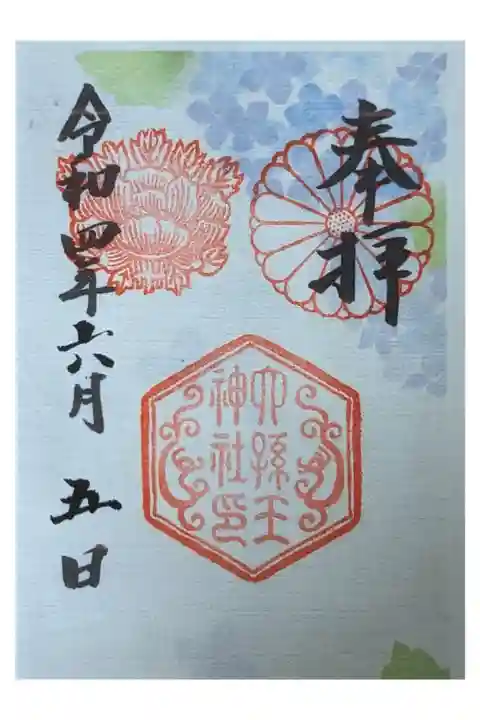 奉拝
六孫王
神社印
令和四年六月五日